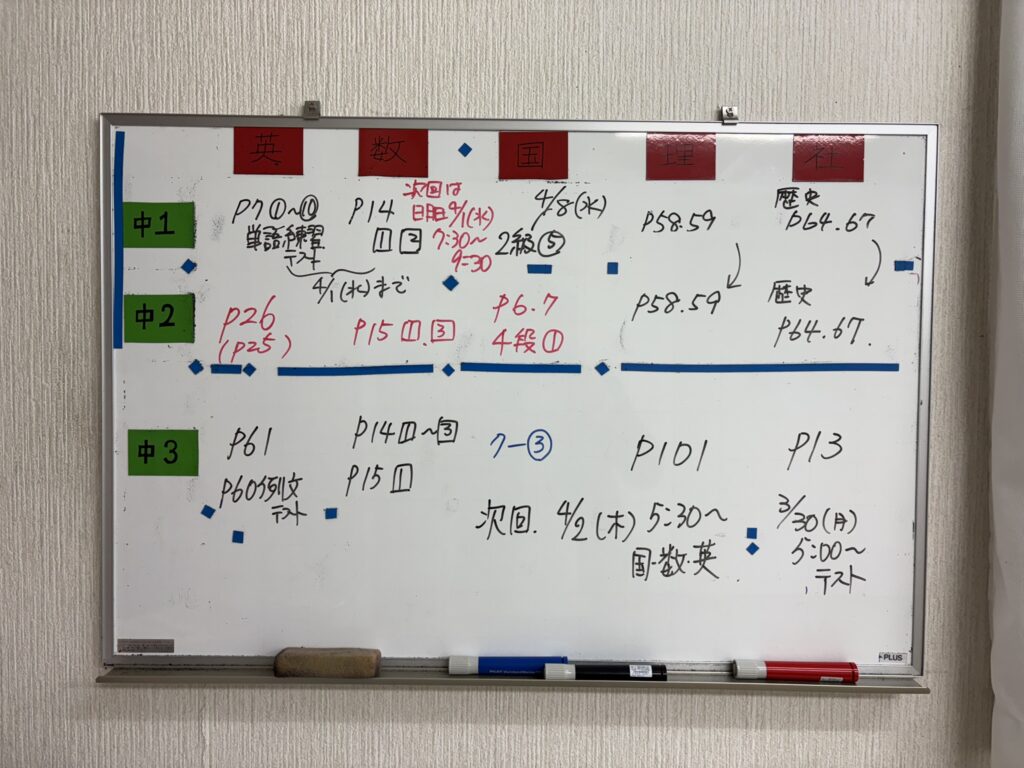 英 数 国 理 社
中1
P7①~⑩
単語練習
テスト
P14
1 2
4/1(水)まで
次回は
4/1(水)
7:30~
9:30
4/8(水)
2級⑤
P58.59
歴史
P64.67
中2
P26
(P25)
P15 1.3
P6.7
4段①
P58.59
歴史
P64.67.
中3
P61
P60例文
テスト
P14 1~3
P15 1
7-③
P101
P13
次回. 4/2(木) 5:30~
国・数・英
3/30(月)
5:00~
テスト
PLUS